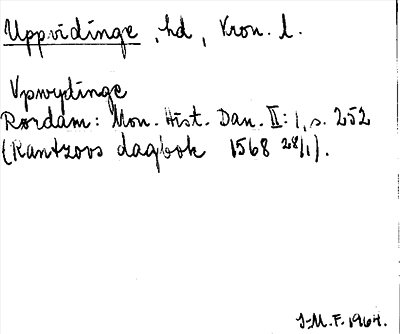 Uppvidinge, hd, Kron. l.
Vpwydinge
Rørdam: Mon. Hist. Dan. II: 1, s. 252
(Rantzovs dagbok 1568 28/1).
I-M.F. 1964.